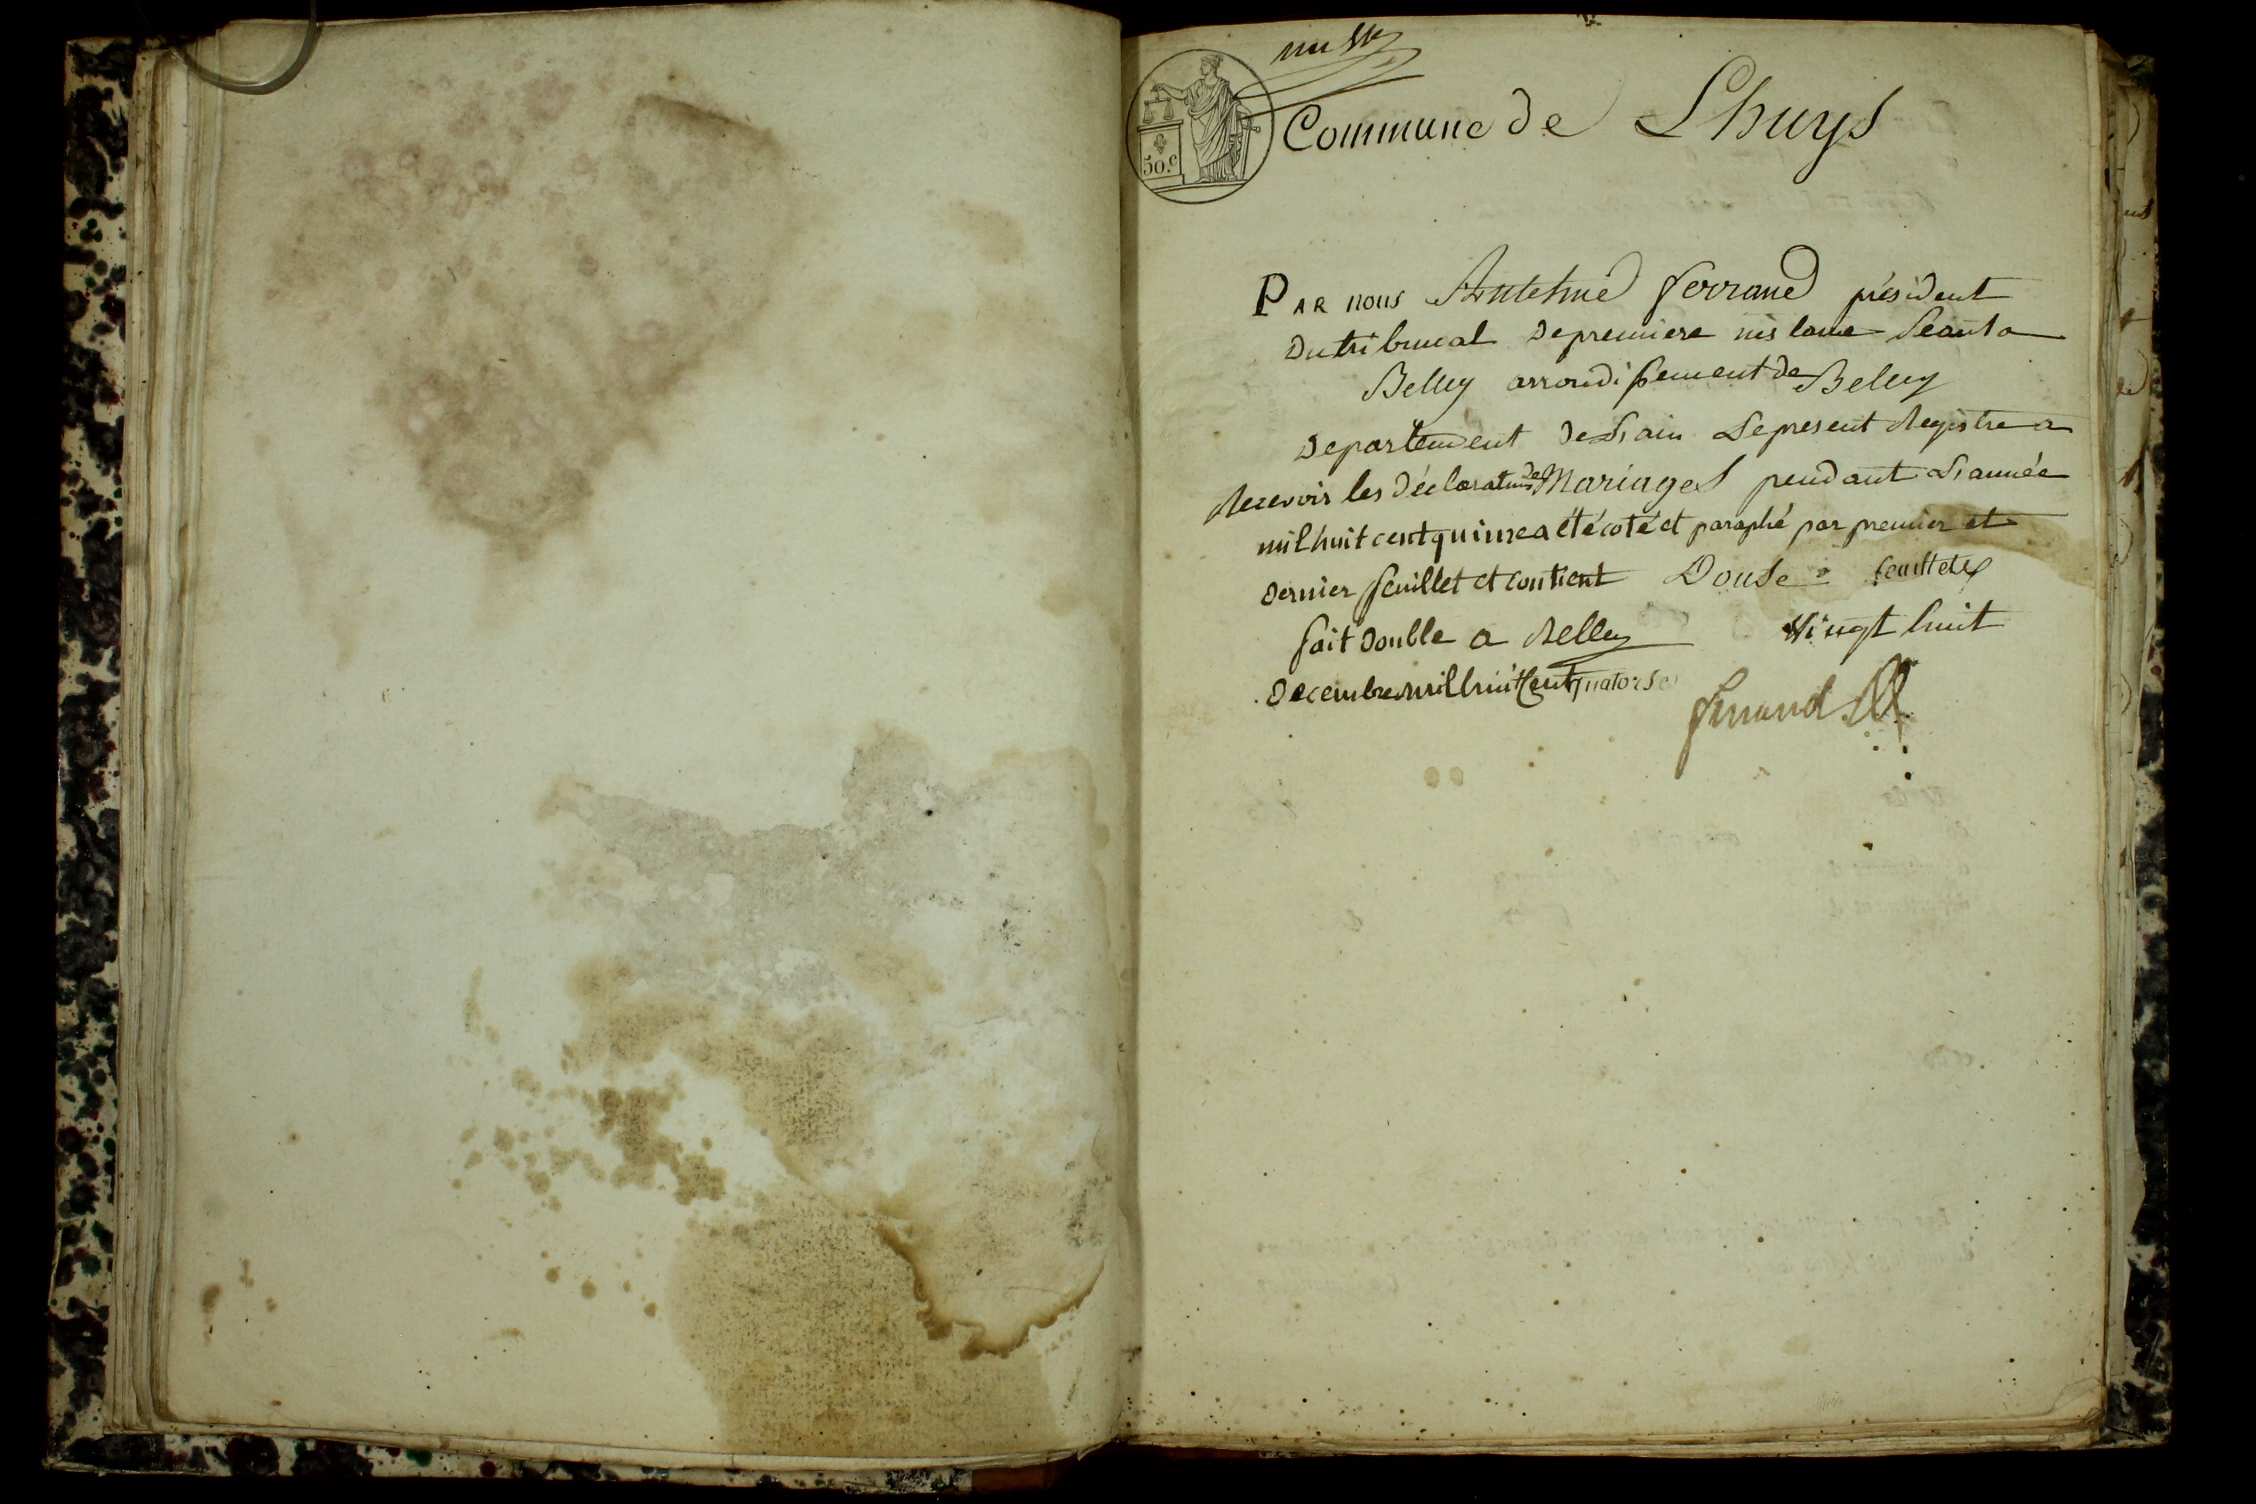 50.c
Commune de Lhuys
PAR nous Antelme ferrand président
du tribunal de premiere instance Séant a
Belley arrondissement de Belley
Departement de L'ain Le present Registre a
Recevoir les déclarations de Mariages pendant L'année
mil huit cent quinze a été coté et paraphé par premier et
dernier feuillet et contient Douse feuillets
fait double a Belley Vingt huit
Decembre mil huit Cent quatorse
ferrand